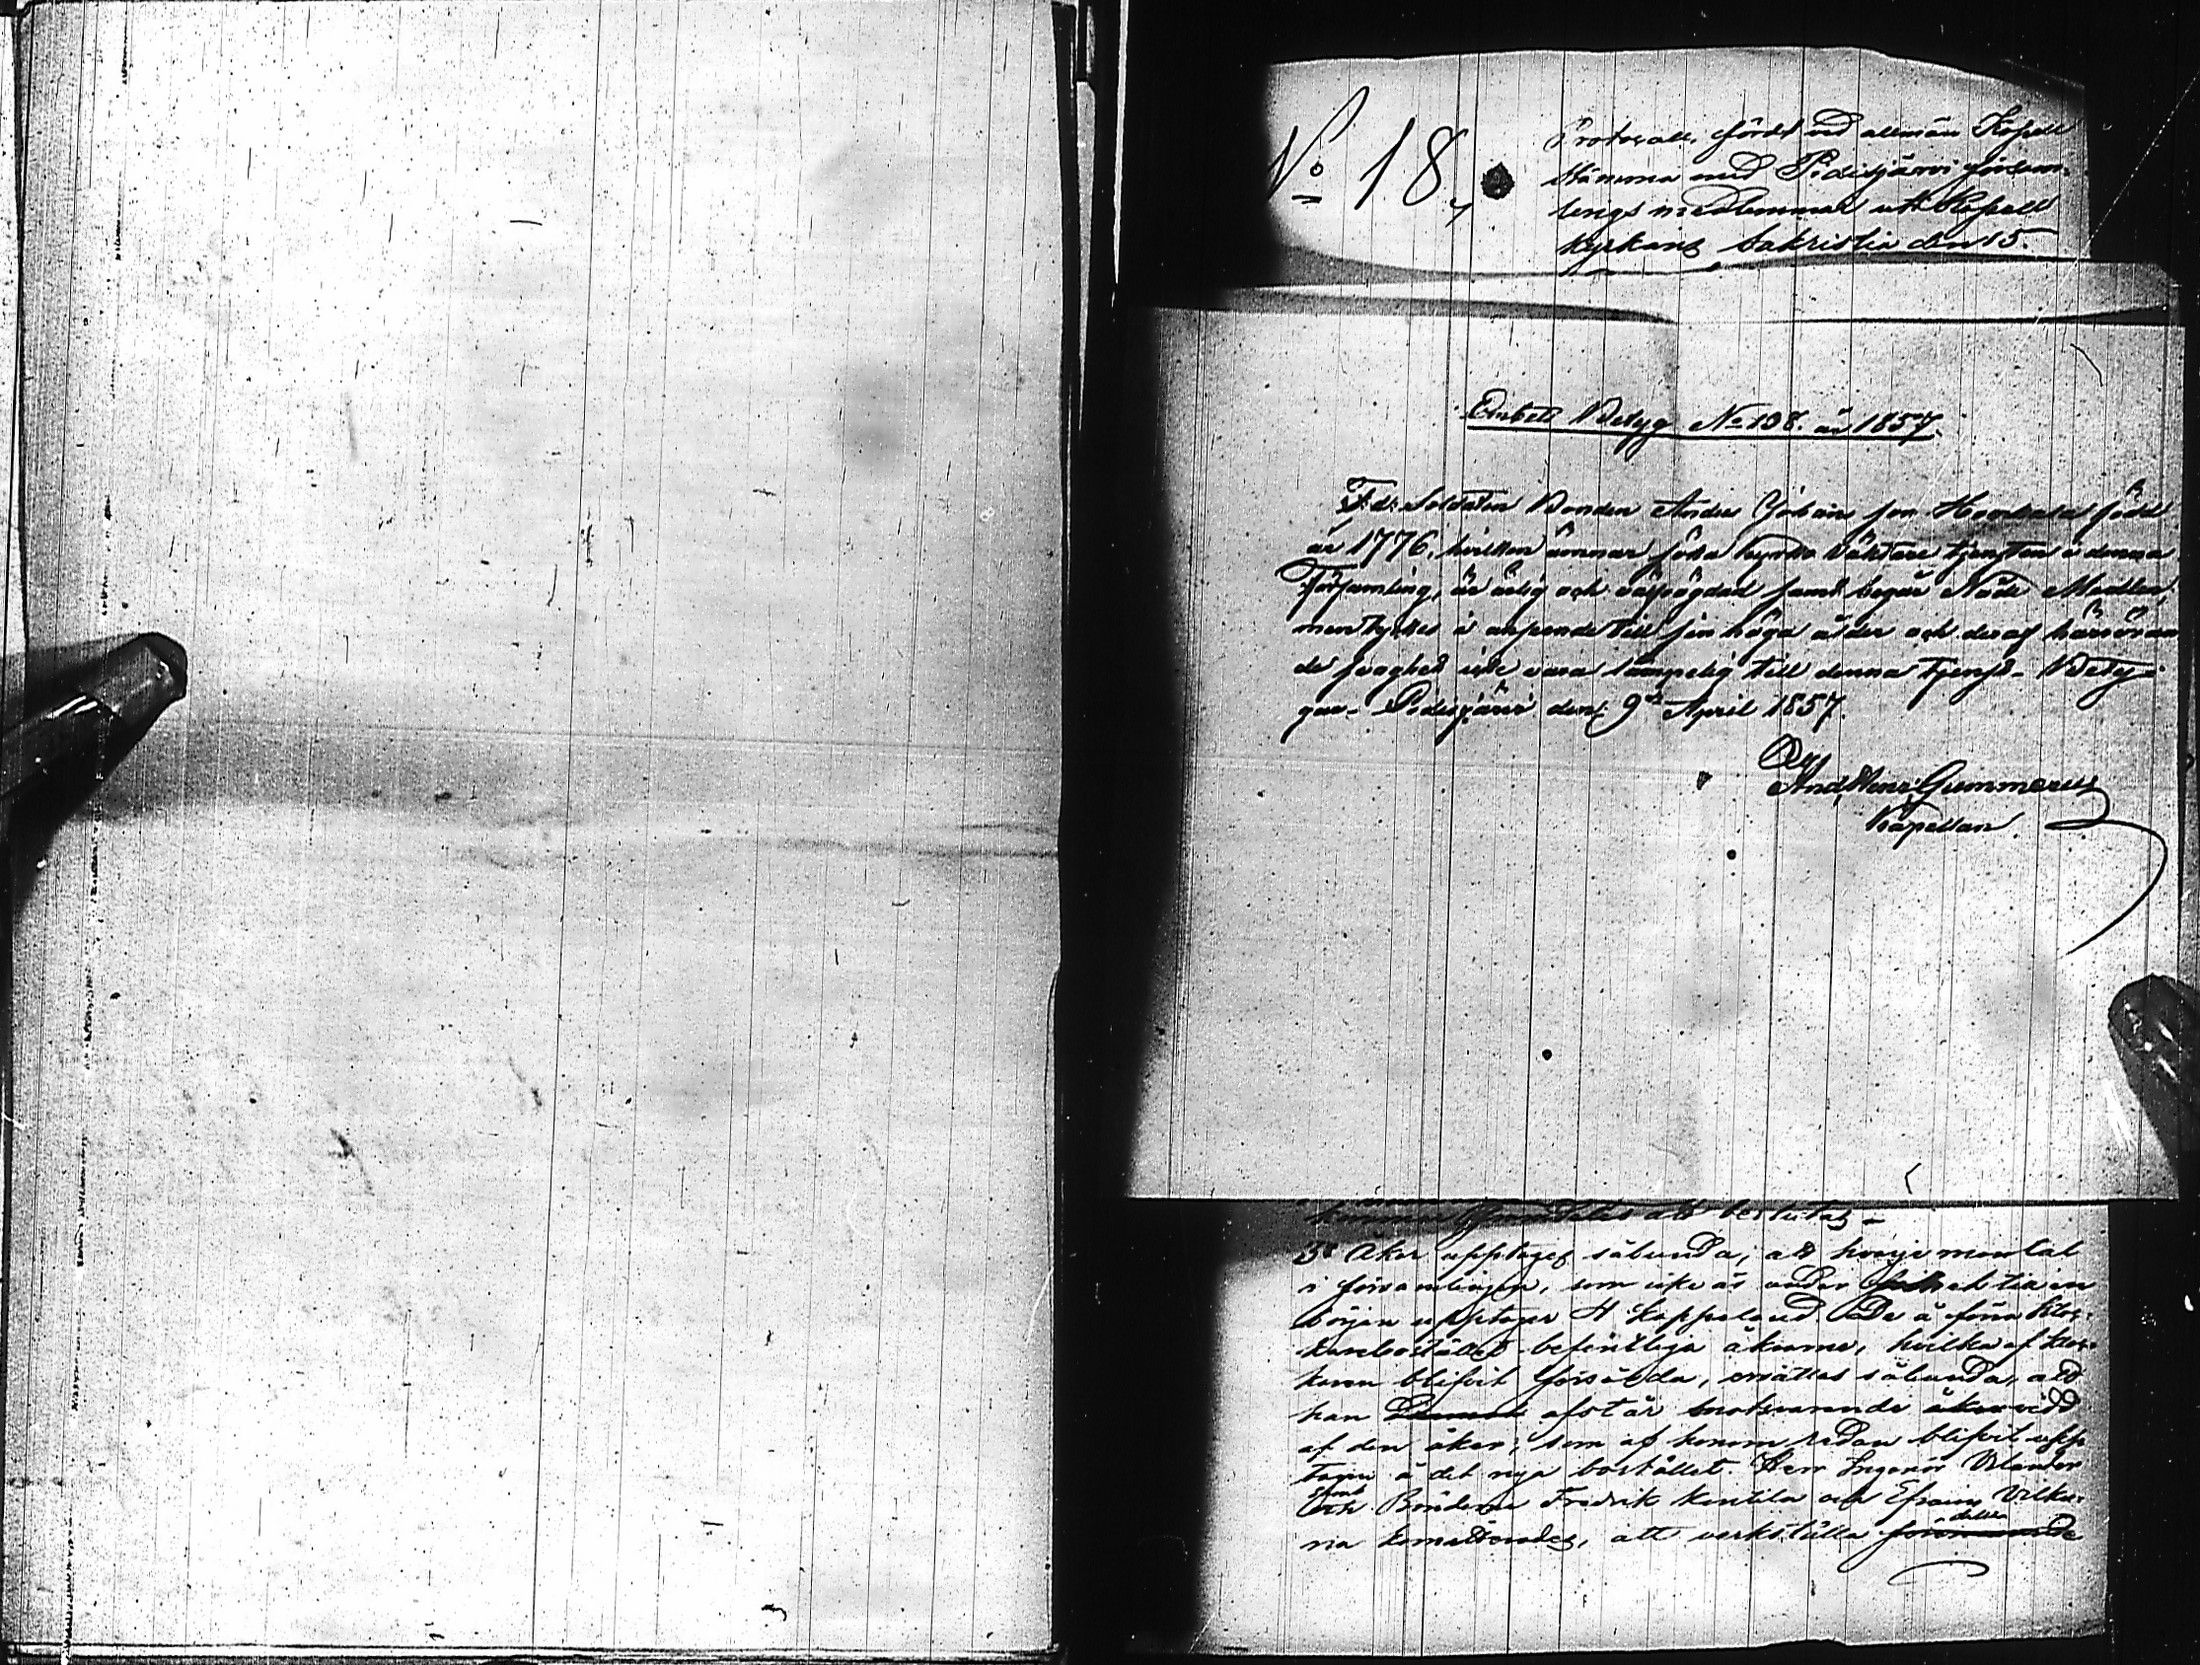 No 18,
Protocoll, fördt vid allmän Kapell
stämma med Pidisjärvi församl-
lings medlemmar uti Kapell
kyrkans Sakristia den 15.
Embets Betyg No 108. år 1857.
F.d. Soldaten Bonden Anders Johan son född
år 1776, hvilken ämnar söka kyrko väktare tjensten i denna
Församling, är ärlig och välfrägdad samt begår Nåde Medlen,
men tyckes i anseende till sin höga ålder och deraf härröran
de svaghet icke vara lämpelig till denna tjenst. Bety-
gar. Pidisjärvi den 9de April 1857.
And. Henr. Gummerus
Kapellan
att beslutas.
3o Åker upptages sålunda, att hvarje mantal
i församlingen, som icke är under
början upptager 4 kappeland. De å förra kloc-
karebostället befintliga åkrarne, hvilka af kloc-
karen blifvit försålda, ersättas sålunda, att
han afstår motsvarande åkervidd
af den åker, som af honom redan blifvit upp
tagen å det nya bostället. Herr Ingeniör
samt
och Bönderne Fredrik Kentila och Efraim Vilku-
na komitterades, att verkställa detta